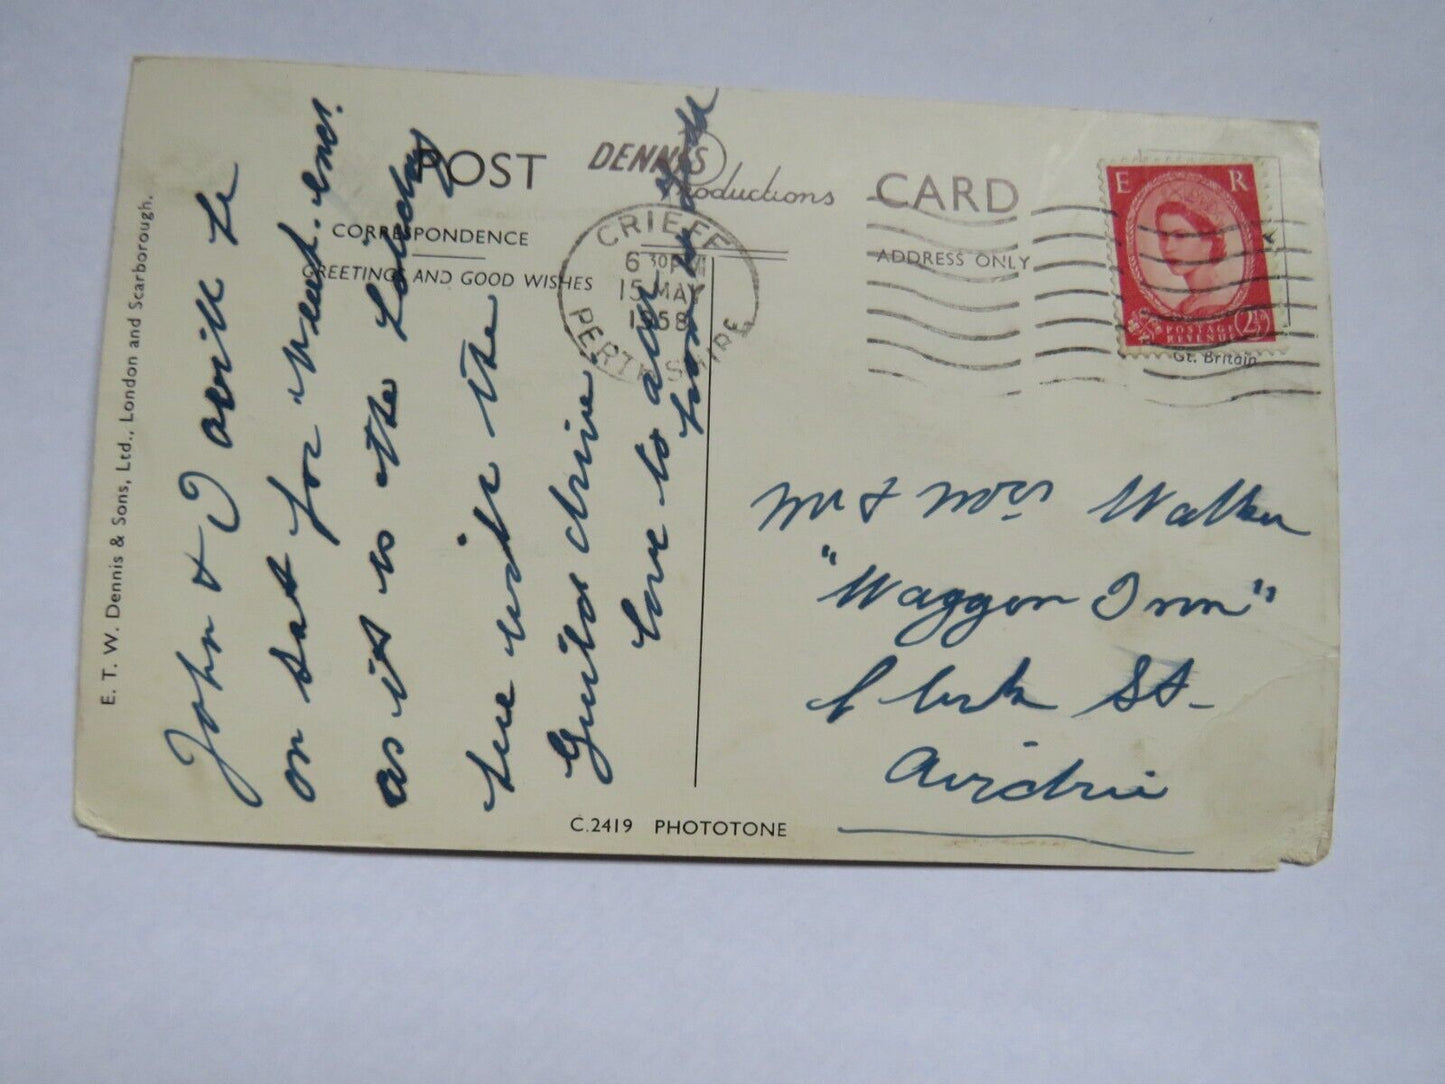 POST CARD
DENNIS
Productions
CORRESPONDENCE
GREETINGS AND GOOD WISHES
ADDRESS ONLY
CRIEFF
6 30 PM
15 MAY
1958
PERTHSHIRE
E R
POSTAGE
REVENUE
2½D
Gt. Britain
E. T. W. Dennis & Sons, Ltd., London and Scarborough.
John & I will be
on sat for week-end.
as it is the holiday
see with the
Guild drive
love to all
from
Mr & Mrs Walker
"Waggon Inn"
Clerk St.
Airdrie
C.2419 PHOTOTONE